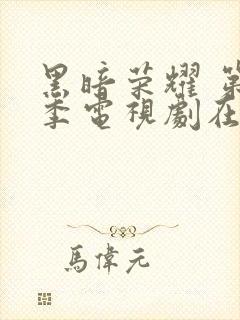 黑暗荣耀 第
季電視劇在
馬偉元